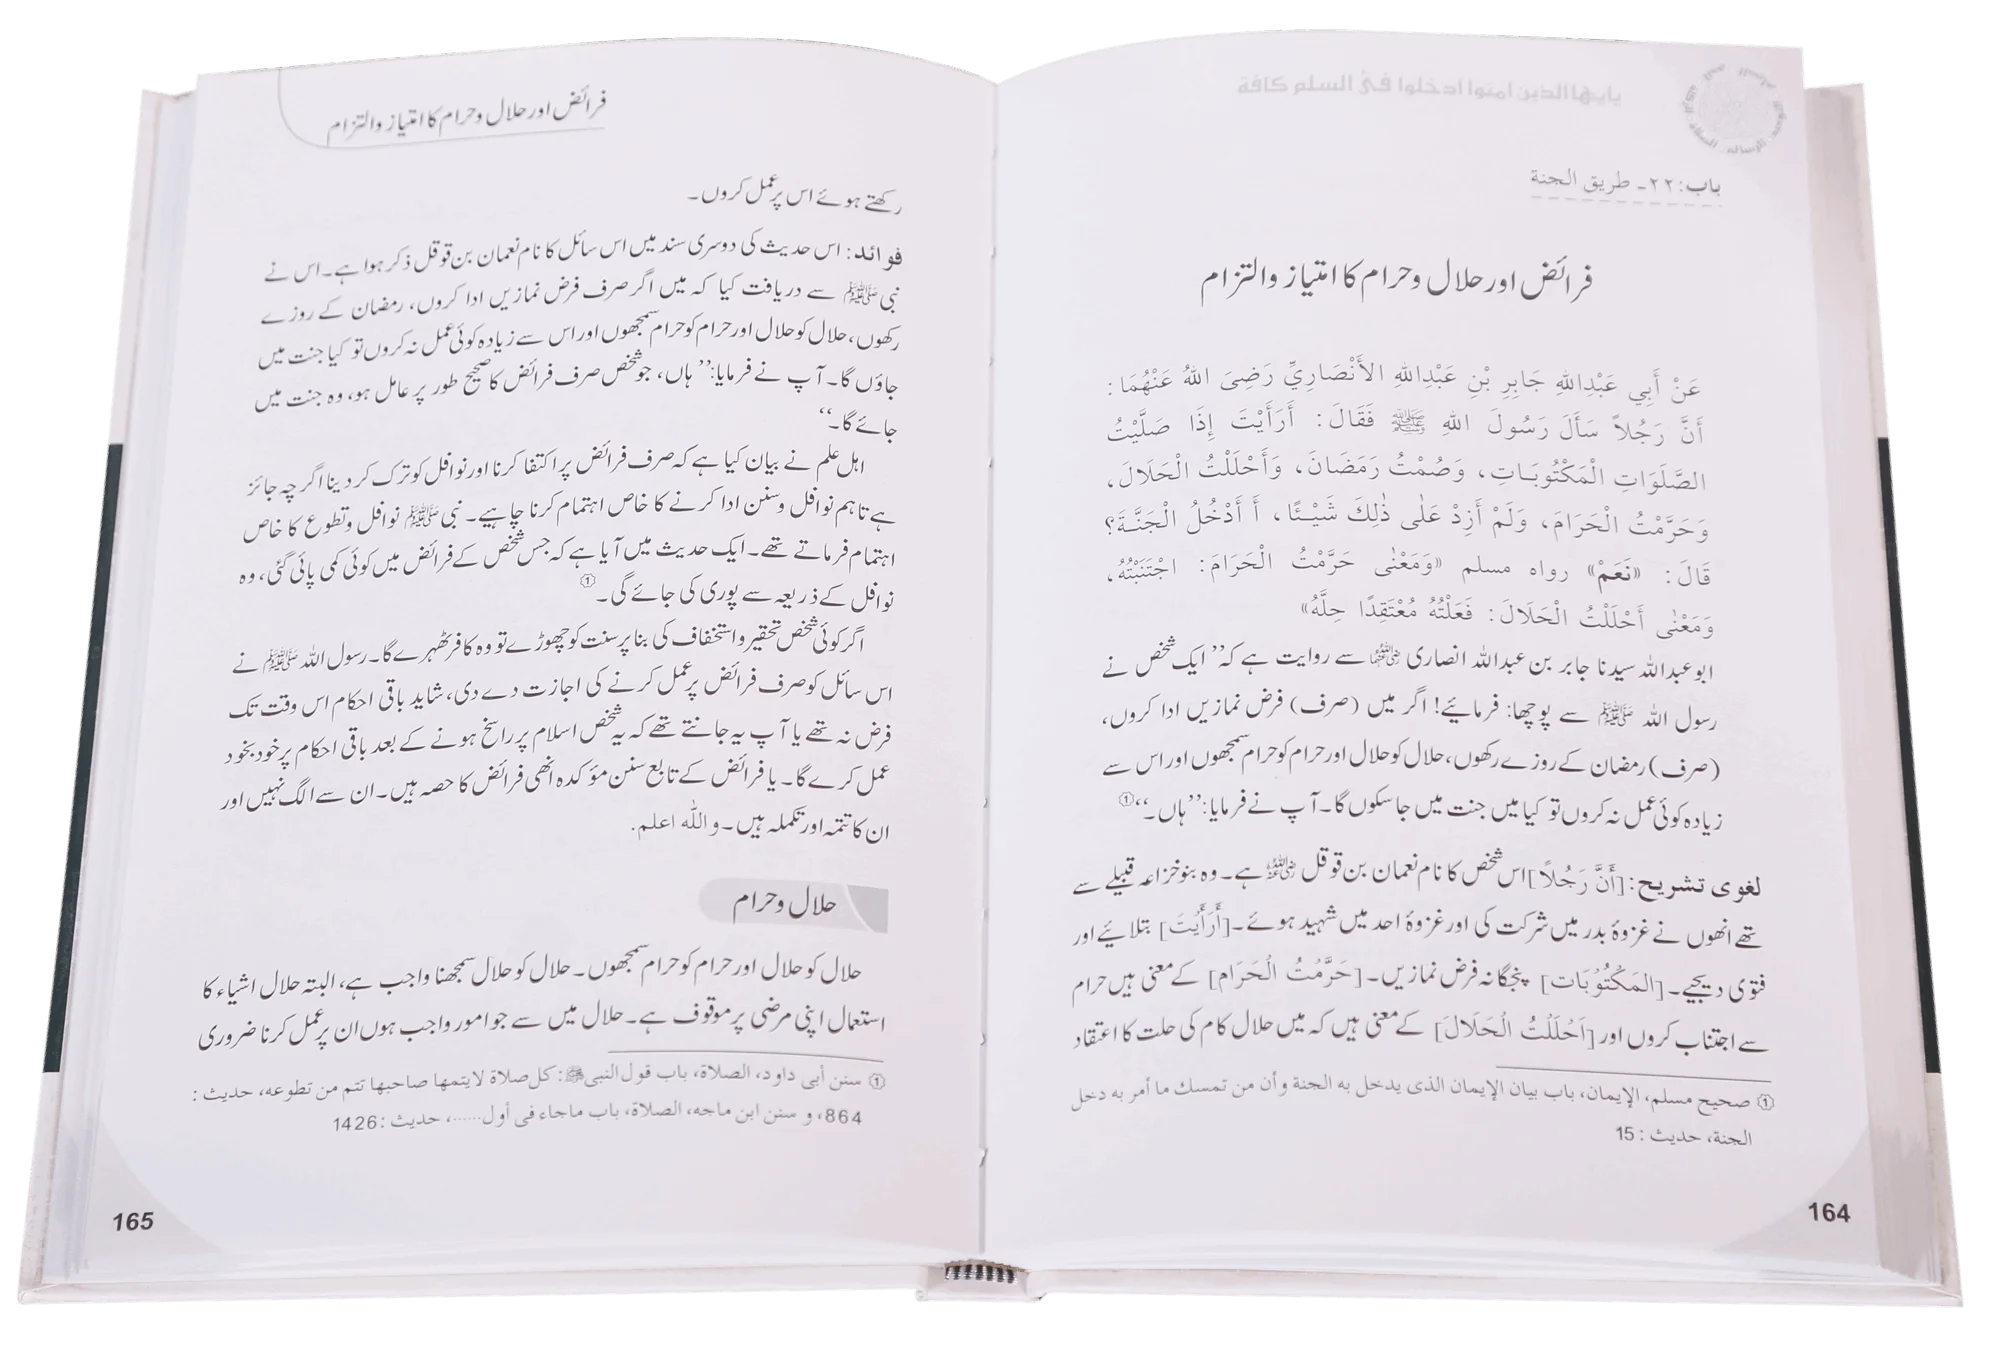 يايها الذين امنوا ادخلوا في السلم كافة
باب: ۲۲۔ طريق الجنة
فرائض اور حلال و حرام کا امتیاز و التزام
عَنْ أَبِي عَبْدِاللهِ جَابِرِ بْنِ عَبْدِاللهِ الأَنْصَارِيِّ رَضِىَ اللهُ عَنْهُمَا:
أَنَّ رَجُلاً سَأَلَ رَسُولَ اللهِ ﷺ فَقَالَ: أَرَأَيْتَ إِذَا صَلَّيْتُ
الصَّلَوَاتِ الْمَكْتُوبَاتِ، وَصُمْتُ رَمَضَانَ، وَأَحْلَلْتُ الْحَلَالَ،
وَحَرَّمْتُ الْحَرَامَ، وَلَمْ أَزِدْ عَلٰى ذٰلِكَ شَيْئًا، أَ أَدْخُلُ الْجَنَّةَ؟
قَالَ: «نَعَمْ» رواه مسلم «وَمَعْنٰى حَرَّمْتُ الْحَرَامَ: اجْتَنَبْتُهُ،
وَمَعْنٰى أَحْلَلْتُ الْحَلَالَ: فَعَلْتُهُ مُعْتَقِدًا حِلَّهُ»
ابو عبداللہ سیدنا جابر بن عبداللہ انصاری رضی اللہ عنہما سے روایت ہے کہ ’’ایک شخص نے
رسول اللہ ﷺ سے پوچھا: فرمائیے! اگر میں (صرف) فرض نمازیں ادا کروں،
(صرف) رمضان کے روزے رکھوں، حلال کو حلال اور حرام کو حرام سمجھوں اور اس سے
زیادہ کوئی عمل نہ کروں تو کیا میں جنت میں جا سکوں گا۔ آپ نے فرمایا: ’’ہاں۔‘‘①
لغوی تشریح: [أَنَّ رَجُلاً] اس شخص کا نام نعمان بن قوقل رضی اللہ عنہ ہے۔ وہ بنو خزاعہ قبیلے سے
تھے انھوں نے غزوۂ بدر میں شرکت کی اور غزوۂ احد میں شہید ہوئے۔ [أَرَأَيْتَ] بتلائیے اور
فتوی دیجیے۔ [المَكْتُوْبَات] پنجگانہ فرض نمازیں۔ [حَرَّمْتُ الْحَرَام] کے معنی ہیں حرام
سے اجتناب کروں اور [اَحْلَلْتُ الْحَلَالَ] کے معنی ہیں کہ میں حلال کام کی حلت کا اعتقاد
① صحيح مسلم، الإيمان، باب بيان الإيمان الذى يدخل به الجنة وأن من تمسك ما أمر به دخل
الجنة، حديث: 15
164
فرائض اور حلال و حرام کا امتیاز و التزام
رکھتے ہوئے اس پر عمل کروں۔
فوائد: اس حدیث کی دوسری سند میں اس سائل کا نام نعمان بن قوقل ذکر ہوا ہے۔ اس نے
نبی ﷺ سے دریافت کیا کہ میں اگر صرف فرض نمازیں ادا کروں، رمضان کے روزے
رکھوں، حلال کو حلال اور حرام کو حرام سمجھوں اور اس سے زیادہ کوئی عمل نہ کروں تو کیا جنت میں
جاؤں گا۔ آپ نے فرمایا: ’’ہاں، جو شخص صرف فرائض کا صحیح طور پر عامل ہو، وہ جنت میں
جائے گا۔‘‘
اہل علم نے بیان کیا ہے کہ صرف فرائض پر اکتفا کرنا اور نوافل کو ترک کر دینا اگرچہ جائز
ہے تاہم نوافل و سنن ادا کرنے کا خاص اہتمام کرنا چاہیے۔ نبی ﷺ نوافل و تطوع کا خاص
اہتمام فرماتے تھے۔ ایک حدیث میں آیا ہے کہ جس شخص کے فرائض میں کوئی کمی پائی گئی، وہ
نوافل کے ذریعہ سے پوری کی جائے گی۔①
اگر کوئی شخص تحقیر و استخفاف کی بنا پر سنت کو چھوڑے تو وہ کافر ٹھہرے گا۔ رسول اللہ ﷺ نے
اس سائل کو صرف فرائض پر عمل کرنے کی اجازت دے دی، شاید باقی احکام اس وقت تک
فرض نہ تھے یا آپ یہ جانتے تھے کہ یہ شخص اسلام پر راسخ ہونے کے بعد باقی احکام پر خود بخود
عمل کرے گا۔ یا فرائض کے تابع سنن مؤکدہ انھی فرائض کا حصہ ہیں۔ ان سے الگ نہیں اور
ان کا تتمہ اور تکملہ ہیں۔ والله اعلم.
حلال و حرام
حلال کو حلال اور حرام کو حرام سمجھوں۔ حلال کو حلال سمجھنا واجب ہے، البتہ حلال اشیاء کا
استعمال اپنی مرضی پر موقوف ہے۔ حلال میں سے جو امور واجب ہوں ان پر عمل کرنا ضروری
① سنن أبى داود، الصلاة، باب قول النبىﷺ: كل صلاة لايتمها صاحبها تتم من تطوعه، حديث:
864، و سنن ابن ماجه، الصلاة، باب ماجاء فى أول......، حديث: 1426
165